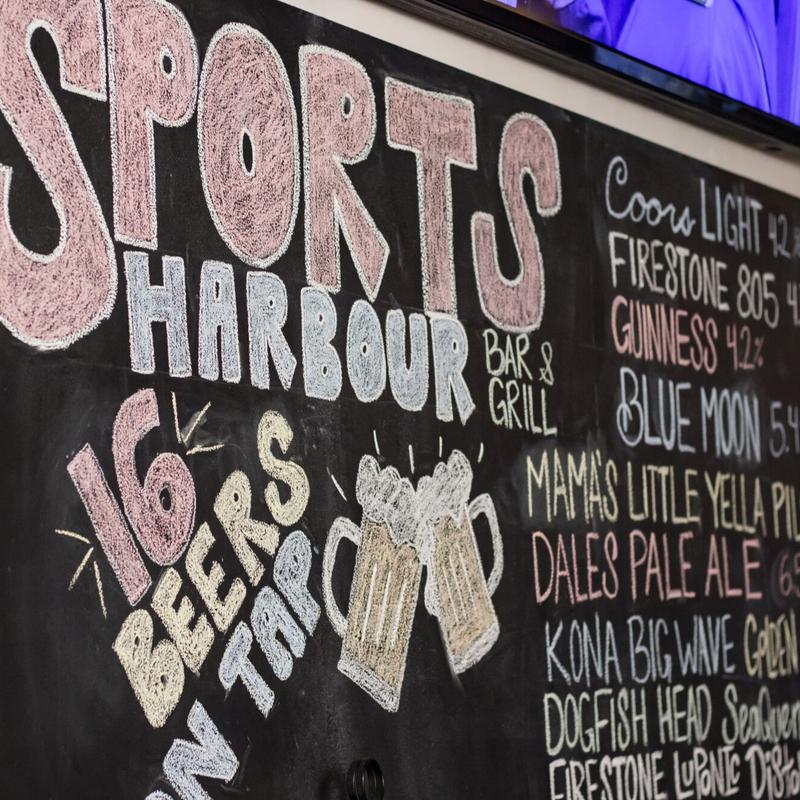 SPORTS
HARBOUR
BAR &
GRILL
16
BEERS
ON TAP
Coors LIGHT 42
FIRESTONE 805
GUINNESS 4.2%
BLUE MOON 5.4
MAMA'S LITTLE YELLA PIL
DALES PALE ALE 65
KONA BIG WAVE GOLDEN
DOGFISH HEAD SeaQuen
FIRESTONE LUPONIC Disto